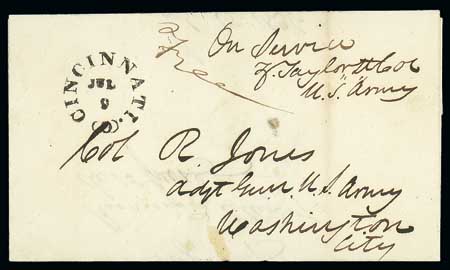 On Service
Z. Taylor Lt Col
U.S. Army
Free
CINCINNATI. O
JUL
9
Col R. Jones
Adjt Genl. U.S. Army
Washington
City